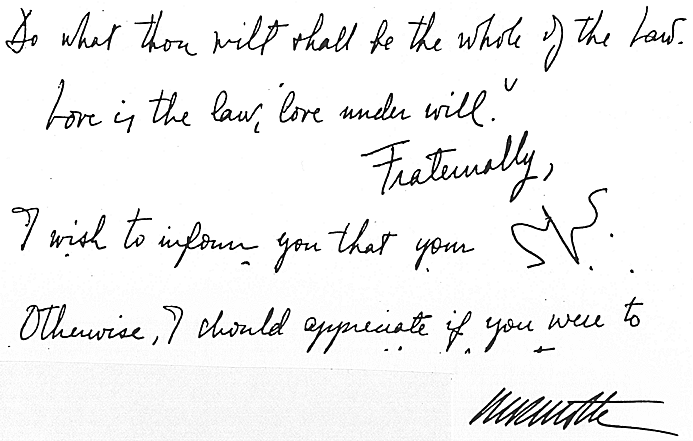 Do what thou wilt shall be the whole of the Law.
Love is the law, love under will."
Fraternally,
I wish to inform you that your
Otherwise, I should appreciate if you were to